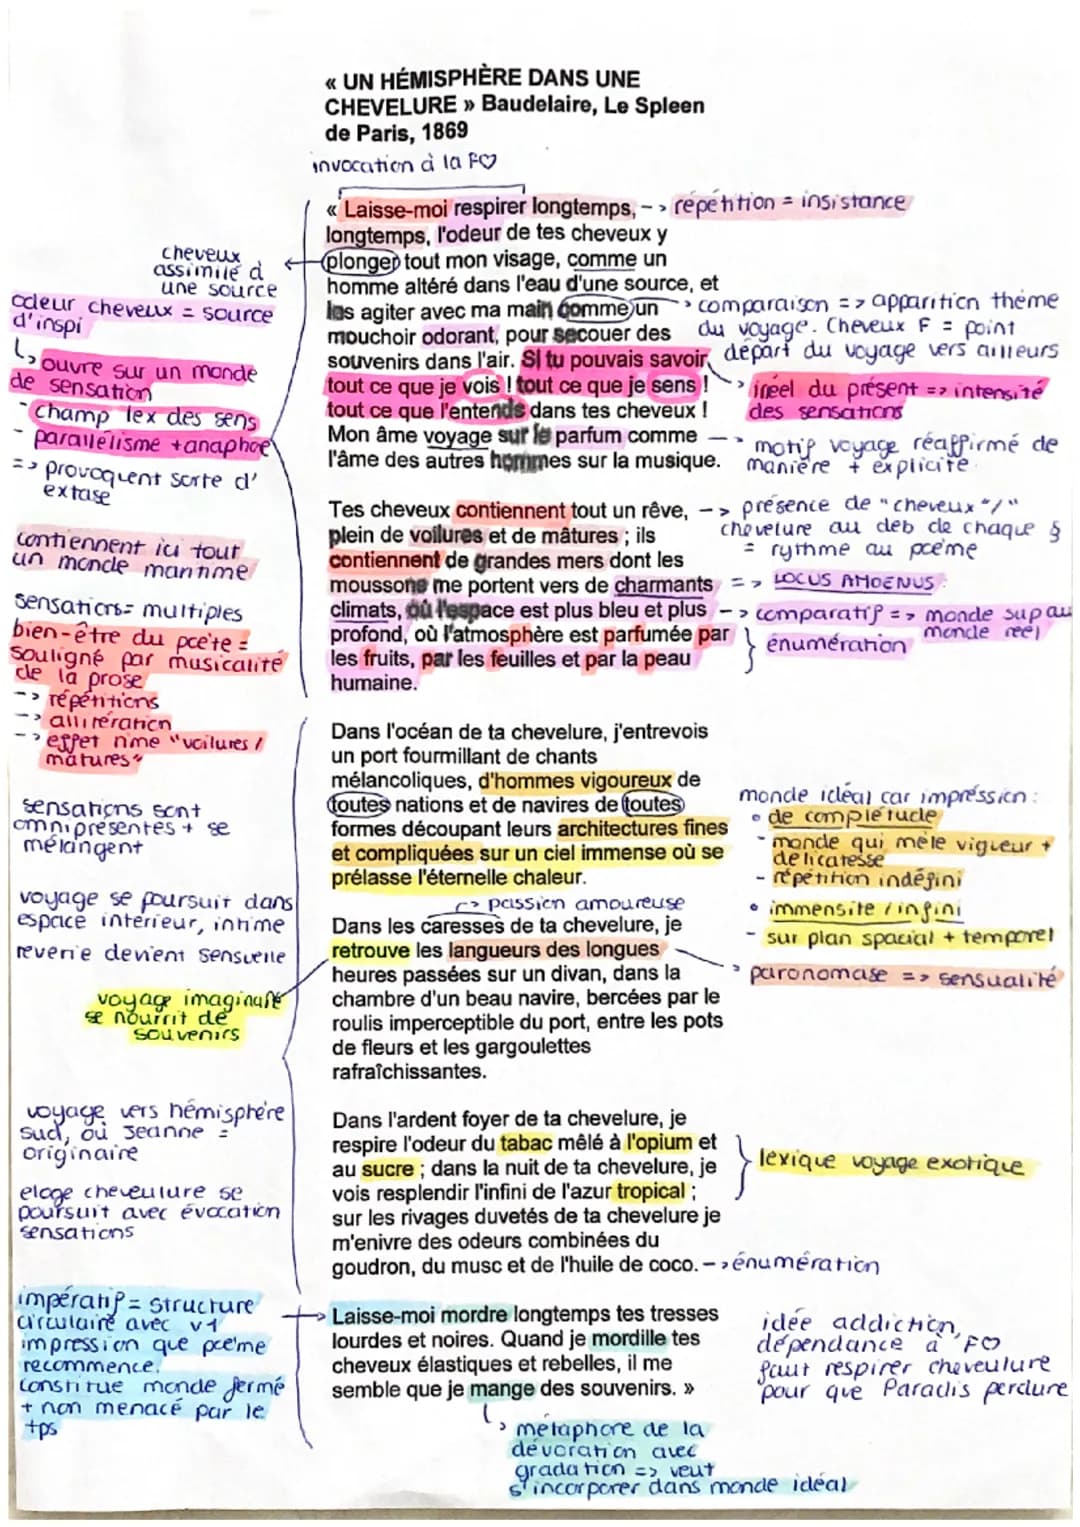 « UN HÉMISPHÈRE DANS UNE
CHEVELURE » Baudelaire, Le Spleen
de Paris, 1869
invocation à la F♡
« Laisse-moi respirer longtemps, -> répétition = insistance
longtemps, l'odeur de tes cheveux y
plonger tout mon visage, comme un
homme altéré dans l'eau d'une source, et
les agiter avec ma main comme un
mouchoir odorant, pour secouer des
souvenirs dans l'air. SI tu pouvais savoir
tout ce que je vois ! tout ce que je sens !
tout ce que l'entends dans tes cheveux !
Mon âme voyage sur le parfum comme
l'âme des autres hommes sur la musique.
cheveux
assimilé à
une source
odeur cheveux = source
d'inspi
↳ ouvre sur un monde
de sensation
- champ lex des sens
- parallélisme + anaphore
=> provoquent sorte d'
extase
comparaison => apparition thème
du voyage. Cheveux F = point
départ du voyage vers ailleurs
irréel du présent => intensité
des sensations
motif voyage réaffirmé de
manière + explicite
Tes cheveux contiennent tout un rêve,
plein de voilures et de mâtures ; ils
contiennent de grandes mers dont les
moussons me portent vers de charmants
climats, où l'espace est plus bleu et plus
profond, où l'atmosphère est parfumée par
les fruits, par les feuilles et par la peau
humaine.
contiennent ici tout
un monde maritime
sensations= multiples
bien-être du poète =
souligné par musicalité
de la prose
-> répétitions
-> allitération
-> effet rime "voilures /
matures"
-> présence de "cheveux"/"
chevelure au deb de chaque §
= rythme au poème
=> LOCUS AMOENUS
-> comparatif => monde sup au
monde reel
énumération
Dans l'océan de ta chevelure, j'entrevois
un port fourmillant de chants
mélancoliques, d'hommes vigoureux de
toutes nations et de navires de toutes
formes découpant leurs architectures fines
et compliquées sur un ciel immense où se
prélasse l'éternelle chaleur.
sensations sont
omniprésentes + se
mélangent
monde idéal car impression :
• de complétude
- monde qui mêle vigueur +
delicatesse
- répétition indéfini
• immensité / infini
- sur plan spacial + temporel
passion amoureuse
Dans les caresses de ta chevelure, je
retrouve les langueurs des longues
heures passées sur un divan, dans la
chambre d'un beau navire, bercées par le
roulis imperceptible du port, entre les pots
de fleurs et les gargoulettes
rafraîchissantes.
voyage se poursuit dans
espace intérieur, intime
reverie devient sensuelle
voyage imaginaire
se nourrit de
souvenirs
paronomase => sensualité
Dans l'ardent foyer de ta chevelure, je
respire l'odeur du tabac mêlé à l'opium et
au sucre ; dans la nuit de ta chevelure, je
vois resplendir l'infini de l'azur tropical ;
sur les rivages duvetés de ta chevelure je
m'enivre des odeurs combinées du
goudron, du musc et de l'huile de coco. -> énumération
voyage vers hémisphère
sud, où Jeanne =
originaire
eloge cheveulure se
poursuit avec évocation
sensations
lexique voyage exotique
Laisse-moi mordre longtemps tes tresses
lourdes et noires. Quand je mordille tes
cheveux élastiques et rebelles, il me
semble que je mange des souvenirs. »
impératif = structure
circulaire avec v1
impression que poème
recommence.
constitue monde fermé
+ non menacé par le
tps
idée addiction,
dépendance à F♡
faut respirer cheveulure
pour que Paradis perdure
↳ métaphore de la
dévoration avec
gradation => veut
s'incorporer dans monde idéal